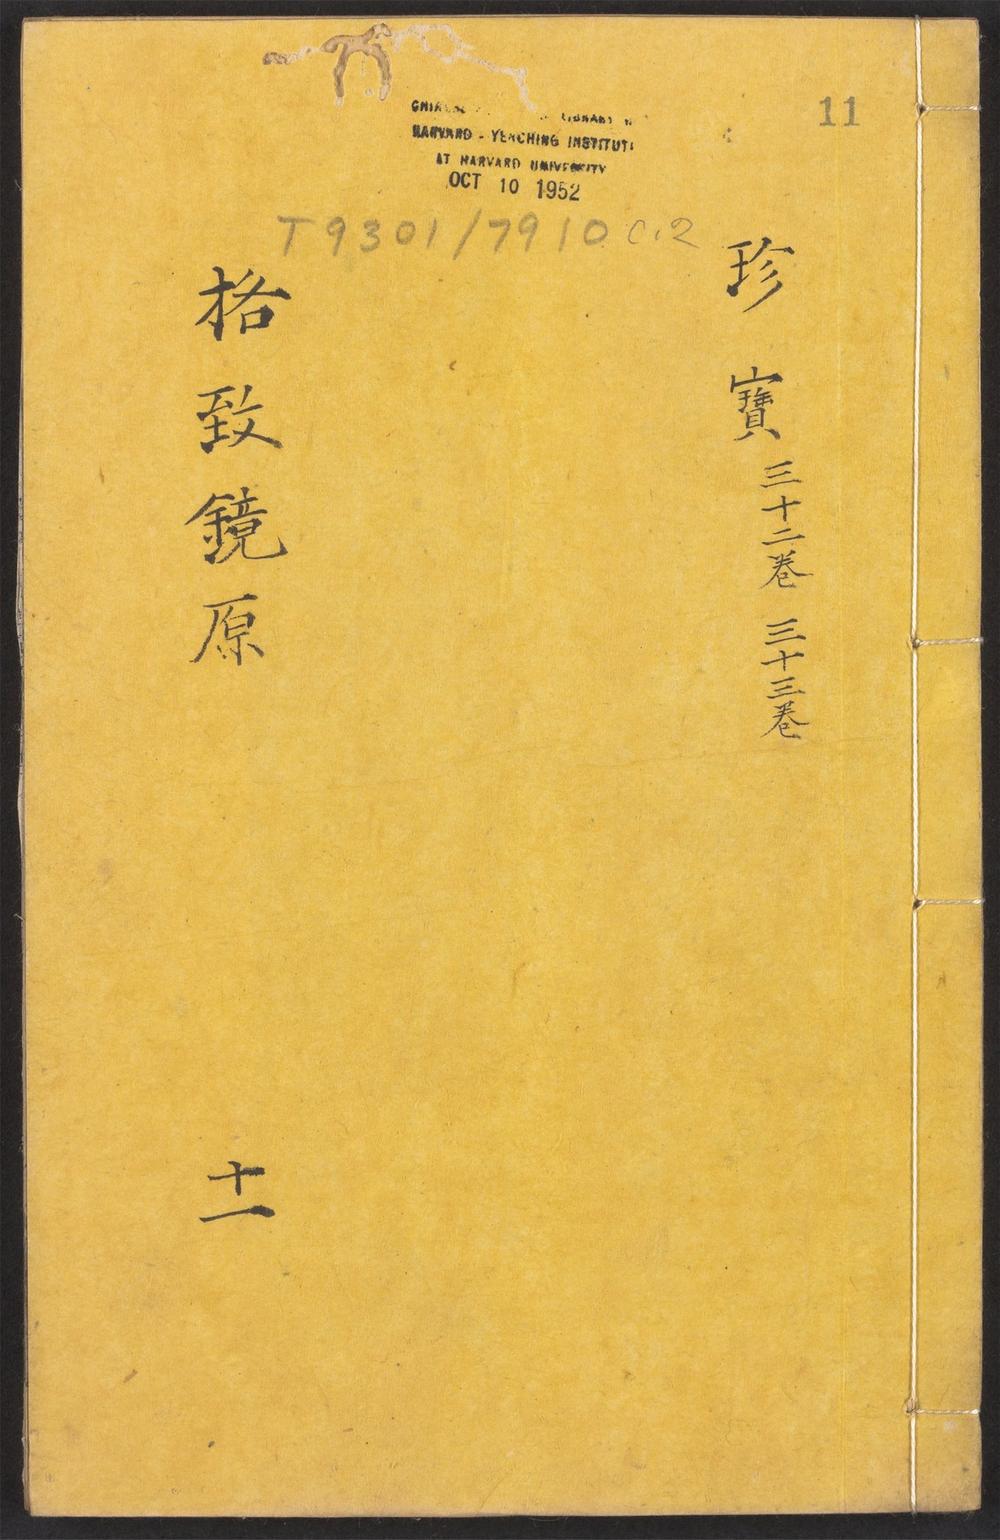 11
HARVARD - YENCHING INSTITUTE
AT HARVARD UNIVERSITY
OCT 10 1952
T9301/7910 C.2
珍寶
三十二卷 三十三卷
格致鏡原
十一